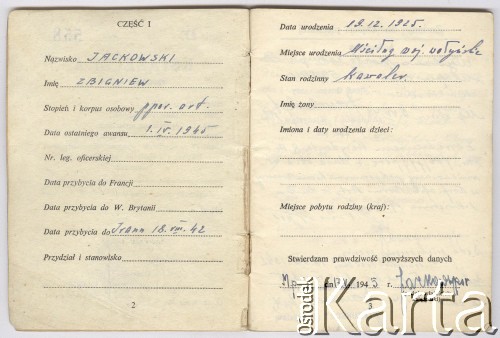 CZĘŚĆ I
Nazwisko JACKOWSKI
Imię ZBIGNIEW
Stopień i korpus osobowy ppor. art.
Data ostatniego awansu 1.IV.1945
Nr. leg. oficerskiej
Data przybycia do Francji
Data przybycia do W. Brytanii
Data przybycia do Iranu 18.VIII.42
Przydział i stanowisko
2
Data urodzenia 19.12.1925.
Miejsce urodzenia Uściług woj. wołyńskie
Stan rodzinny kawaler
Imię żony
Imiona i daty urodzenia dzieci:
Miejsce pobytu rodziny (kraj):
Stwierdzam prawdziwość powyższych danych
dn. 194 r.
3
Ośrodek
Karta